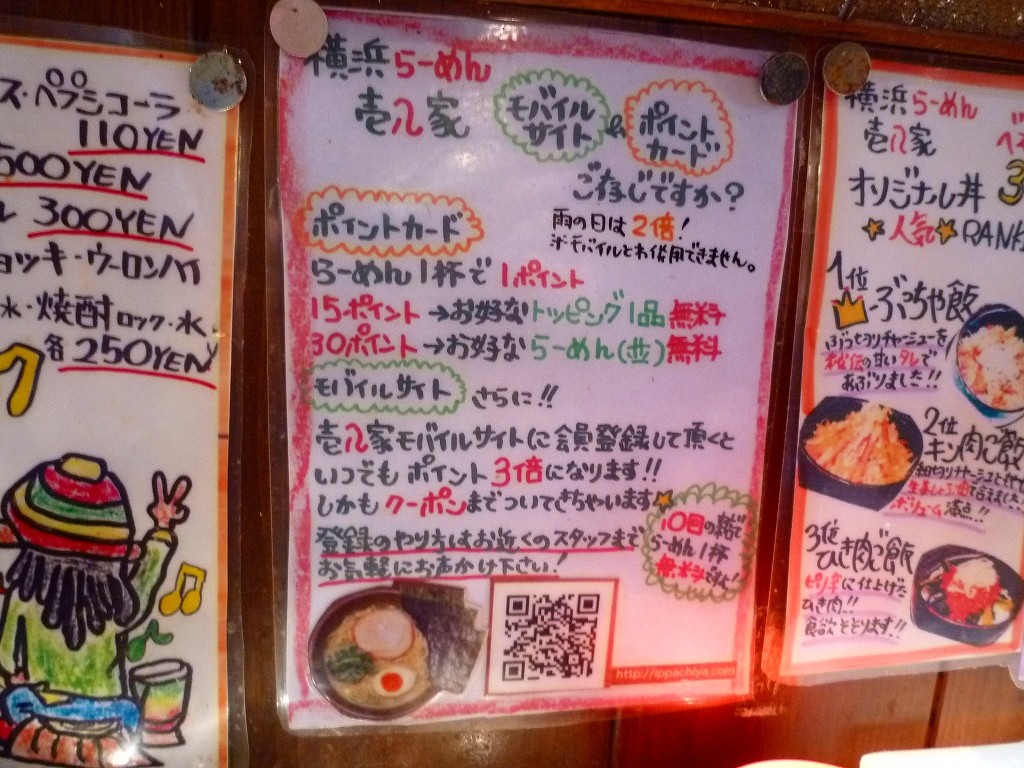 ス・ペプシコーラ
110YEN
500YEN
300YEN
ョッキ・ウーロンハイ
水・焼酎ロック・水
各250YEN
横浜らーめん
壱八家
モバイル
サイト
&
ポイント
カード
ご存じですか?
ポイントカード
雨の日は2倍!
※モバイルとわ併用できません。
らーめん1杯で1ポイント
15ポイント→お好なトッピング1品無料
30ポイント→お好ならーめん(並)無料
モバイルサイト さらに!!
壱八家モバイルサイトに会員登録して頂くと
いつでもポイント3倍になります!!
しかもクーポンまでついてきちゃいます
登録のやり方はお近くのスタッフまで
お気軽にお声かけ下さい!
10回の
らーめん1杯
無料ですよ!
http://ippachiya.com
横浜らーめん
壱八家
オリジナル丼
人気 RANK
1位
ぶっちゃ飯
ぶっ切りチャーシューを
秘伝の甘いタレで
あぶりました!!
2位
キン肉っ飯
ボリューム満点!!
3位
ひき肉っ飯
ピリ辛に仕上げた
ひき肉!!
食欲そそります!!